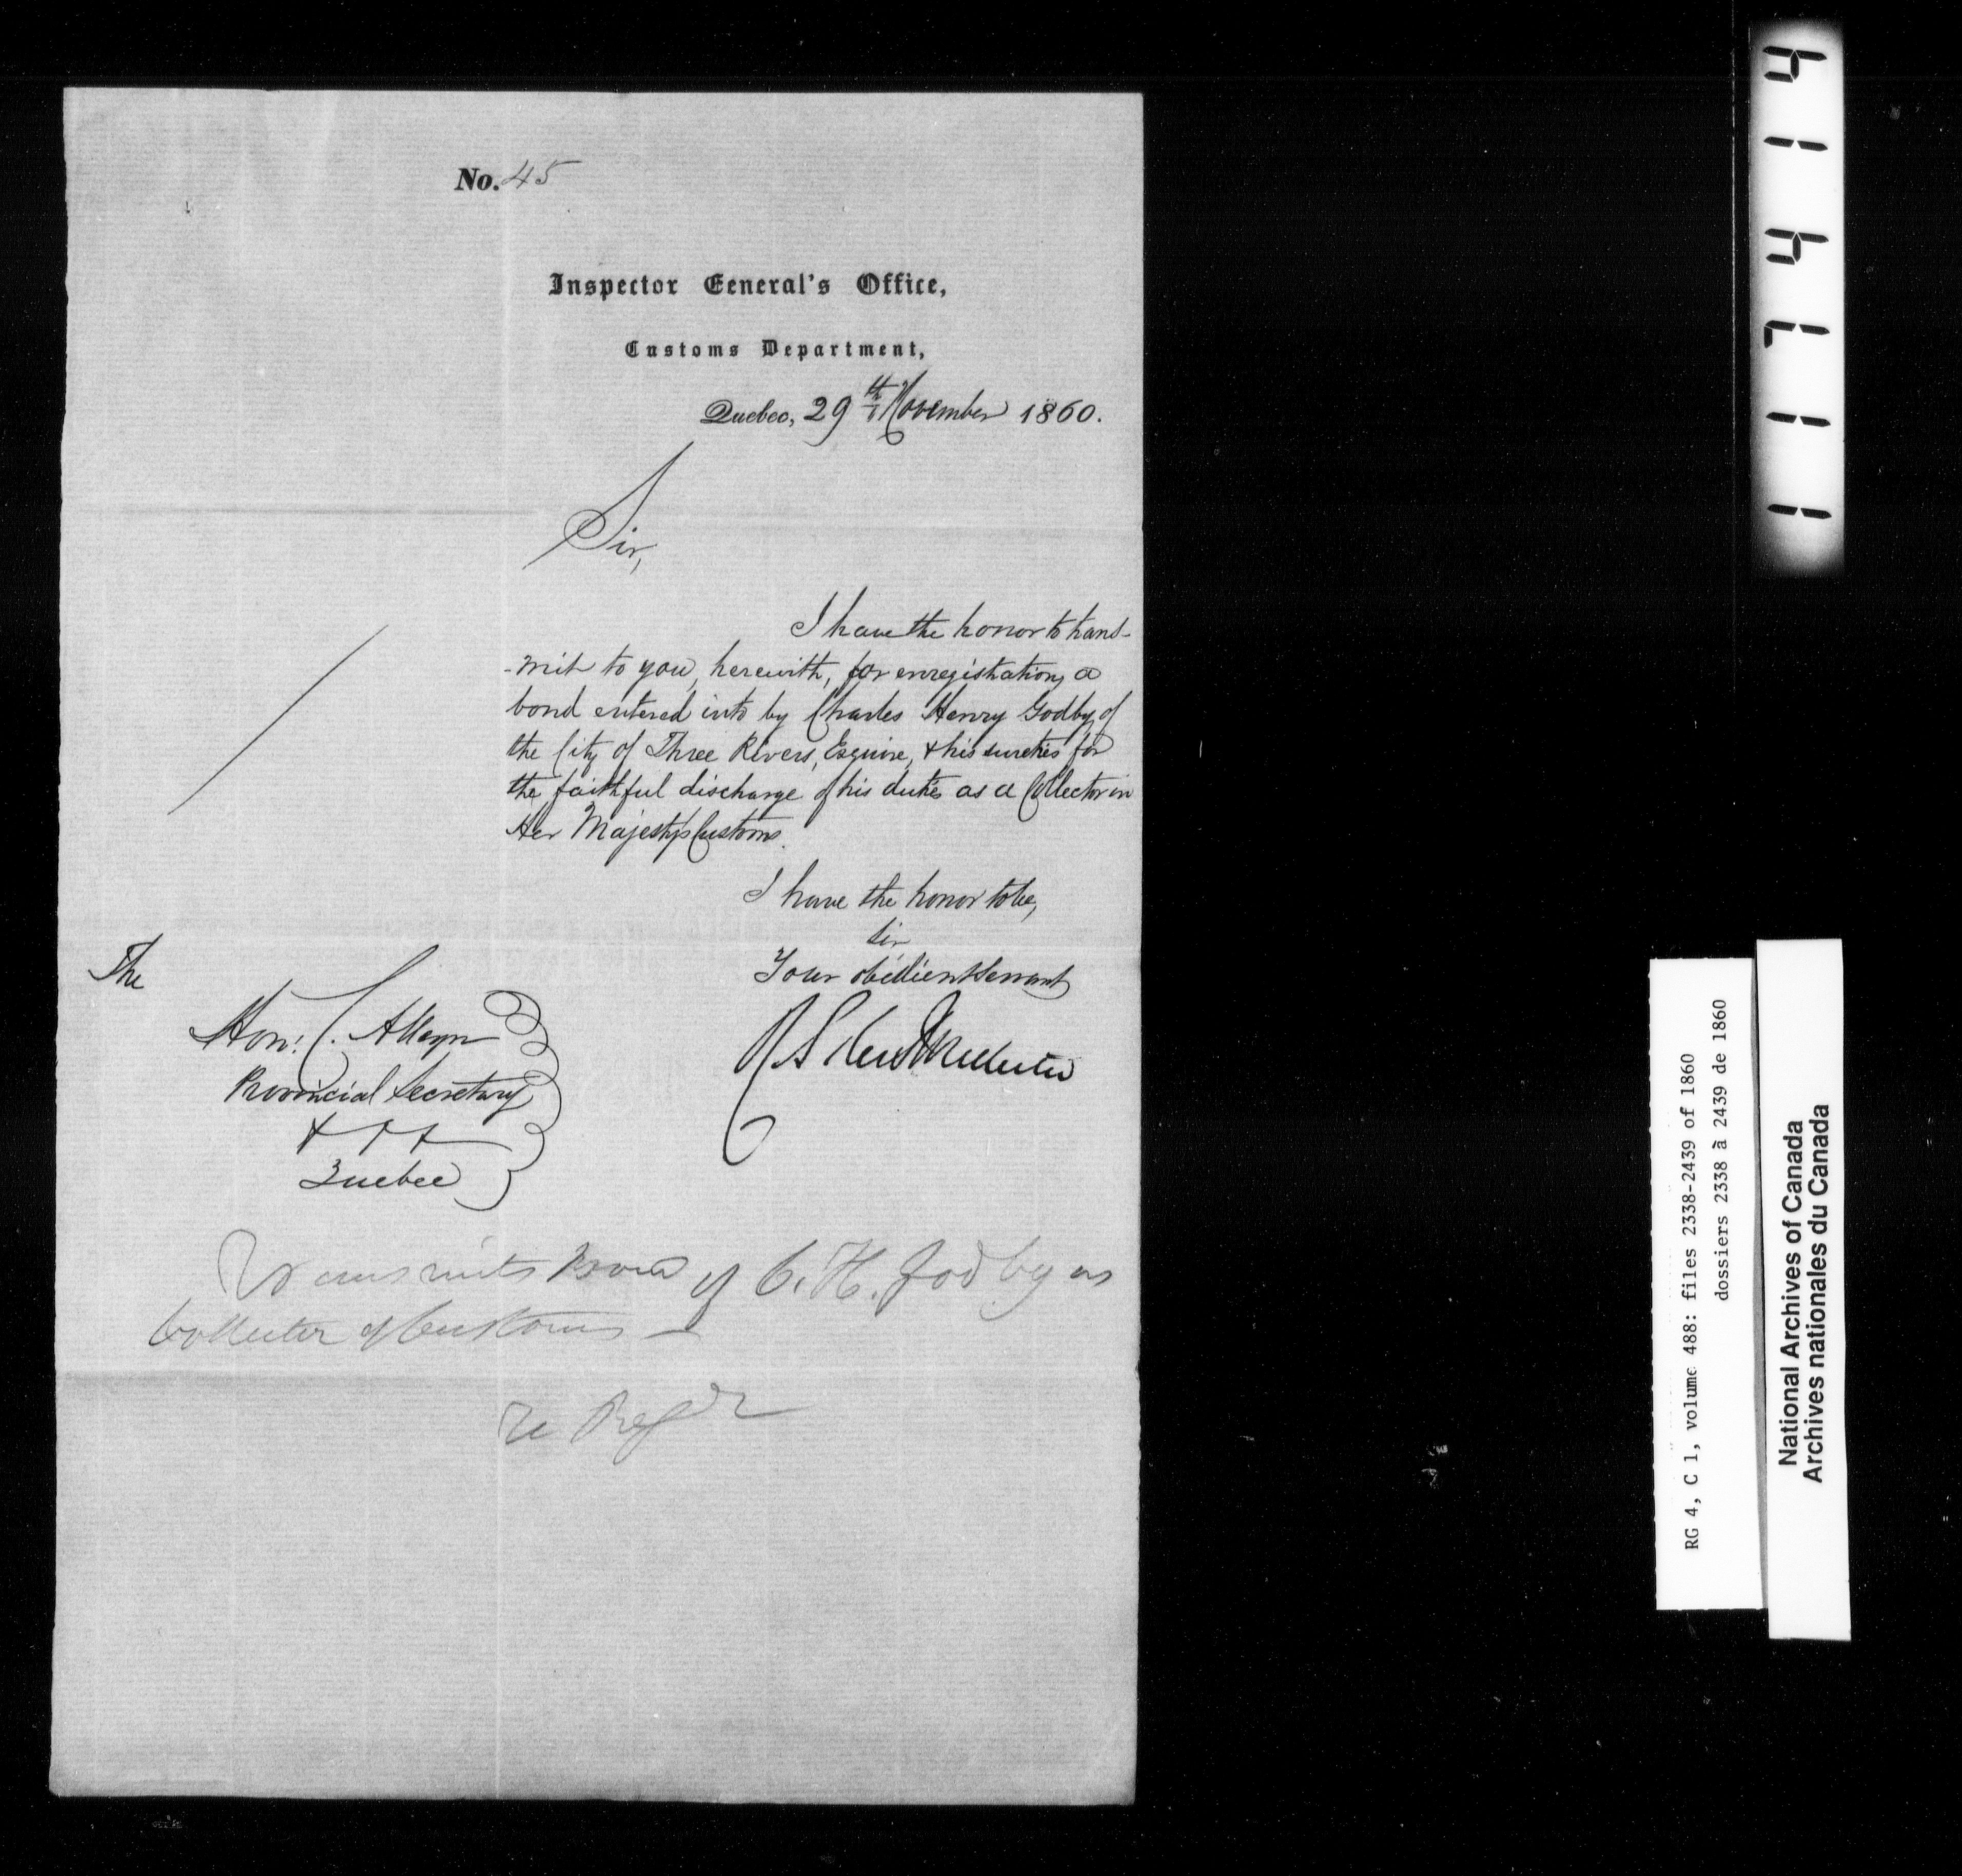 No. 45
Inspector General's Office,
Customs Department,
Quebec, 29th November 1860.
Sir,
I have the honor to trans-
-mit to you, herewith, for enregistration, a
bond entered into by Charles Henry Godby, of
the City of Three Rivers, Esquire, & his sureties for
the faithful discharge of his duties as a Collector in
Her Majesty's Customs.
I have the honor to be,
Sir
Your obedient Servant
The
Hon: C. Alleyn
Provincial Secretary
Quebec
Transmits Bond of C. H. Godby as
Collector of Customs —
411471
RG 4, C 1, volume 488: files 2338-2439 of 1860
dossiers 2338 à 2439 de 1860
National Archives of Canada
Archives nationales du Canada